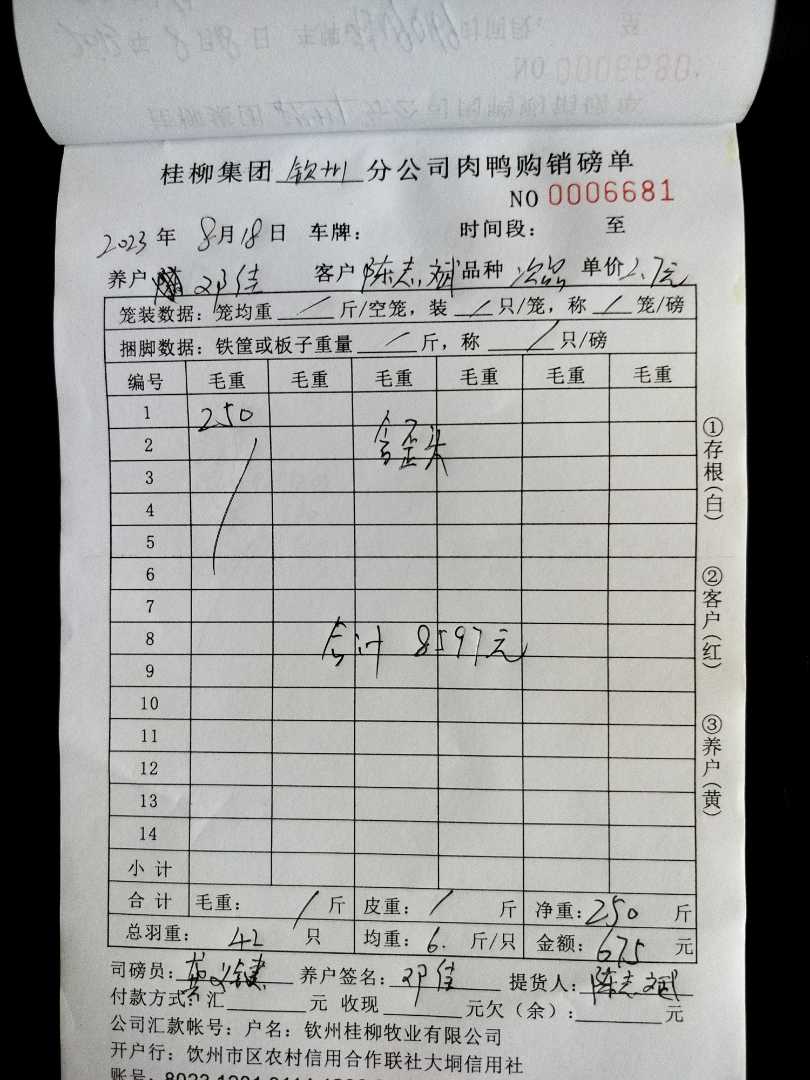 桂柳集团 钦州 分公司肉鸭购销磅单
NO 0006681
2023 年 8月18日 车牌： 时间段： 至
养户 邓佳 客户 陈志斌 品种 次品 单价 2.7元
笼装数据：笼均重 / 斤/空笼，装 / 只/笼，称 / 笼/磅
捆脚数据：铁筐或板子重量 / 斤，称 / 只/磅
编号 毛重 毛重 毛重 毛重 毛重 毛重
1 250
2 含歪头
3
4
5
6
7
8 合计 8597元
9
10
11
12
13
14
小计
合计 毛重： / 斤 皮重： / 斤 净重：250 斤
总羽重： 42 只 均重：6. 斤/只 金额：675 元
司磅员： 养户签名：邓佳 提货人：陈志斌
付款方式：汇 元 收现 元欠（余）： 元
公司汇款帐号：户名：钦州桂柳牧业有限公司
开户行：钦州市区农村信用合作联社大垌信用社
①存根(白)
②客户(红)
③养户(黄)